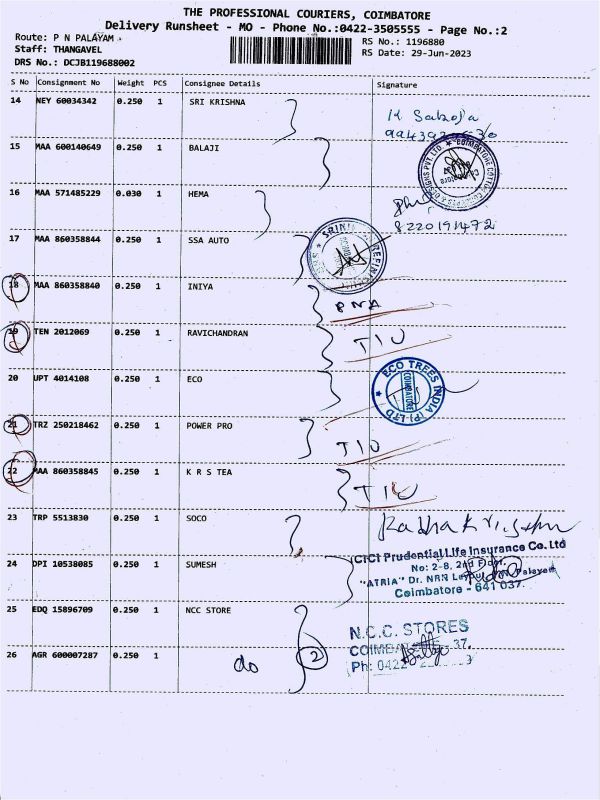 THE PROFESSIONAL COURIERS, COIMBATORE
Delivery Runsheet - MO - Phone No.:0422-3505555 - Page No.:2
Route: P N PALAYAM
Staff: THANGAVEL
DRS No.: DCJB119688002
RS No.: 1196880
RS Date: 29-Jun-2023
S No Consignment No Weight PCS Consignee Details Signature
14 NEY 60034342 0.250 1 SRI KRISHNA
15 MAA 600140649 0.250 1 BALAJI
COIMBATORE
DESIGNS PVT. LTD
16 MAA 571485229 0.030 1 HEMA
8220191472
17 MAA 860358844 0.250 1 SSA AUTO
18 MAA 860358840 0.250 1 INIYA
PNA
19 TEN 2012069 0.250 1 RAVICHANDRAN
TIU
20 UPT 4014108 0.250 1 ECO
ECO TREES INDIA (P) LTD
COIMBATORE
21 TRZ 250218462 0.250 1 POWER PRO
TIU
22 MAA 860358845 0.250 1 K R S TEA
TIU
23 TRP 5513830 0.250 1 SOCO
24 DPI 10538085 0.250 1 SUMESH
ICICI Prudential Life Insurance Co. Ltd
No: 2-8, 2nd Floor,
"ATRIA" Dr. NRN
Coimbatore - 641 037.
25 EDQ 15896709 0.250 1 NCC STORE
N.C.C. STORES
37.
Ph: 0422
26 AGR 600007287 0.250 1 do 2